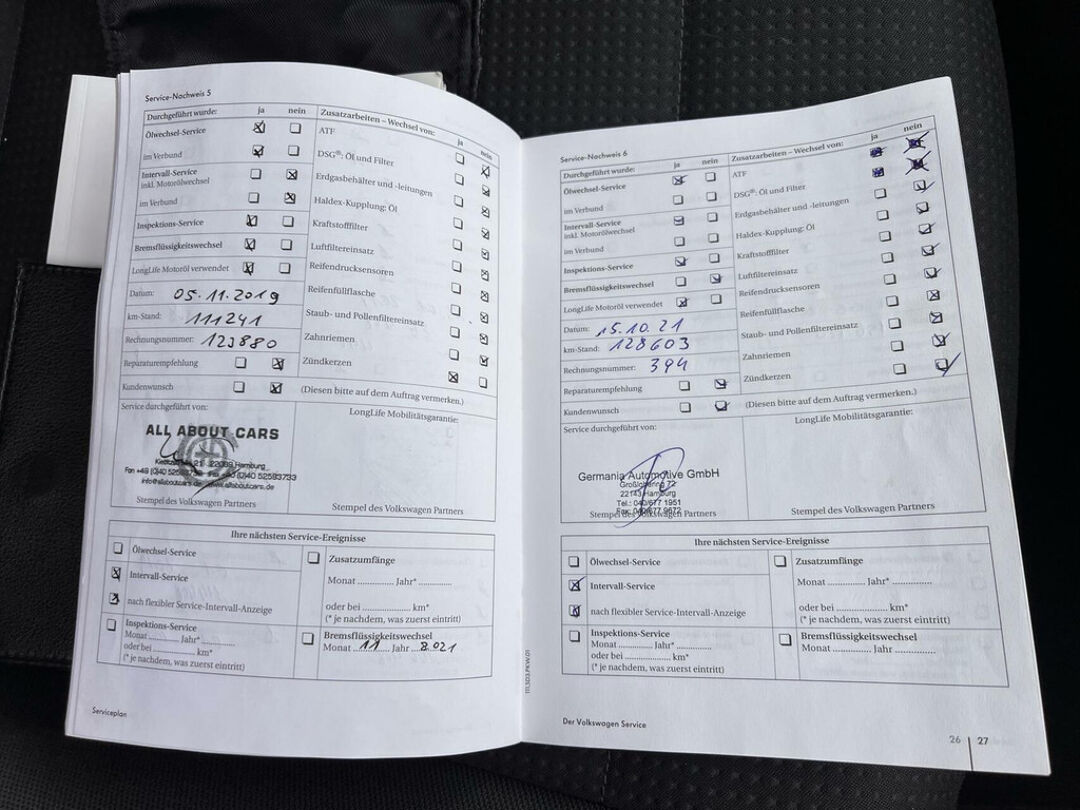 Service-Nachweis 5
Durchgeführt wurde: ja nein Zusatzarbeiten – Wechsel von: ja nein
Ölwechsel-Service
im Verbund
Intervall-Service
inkl. Motorölwechsel
im Verbund
Inspektions-Service
Bremsflüssigkeitswechsel
LongLife Motoröl verwendet
Datum: 05.11.2019
km-Stand: 111241
Rechnungsnummer: 123880
Reparaturempfehlung
Kundenwunsch
ATF
DSG®: Öl und Filter
Erdgasbehälter und -leitungen
Haldex-Kupplung: Öl
Kraftstofffilter
Luftfiltereinsatz
Reifendrucksensoren
Reifenfüllflasche
Staub- und Pollenfiltereinsatz
Zahnriemen
Zündkerzen
(Diesen bitte auf dem Auftrag vermerken.)
Service durchgeführt von:
ALL ABOUT CARS
21 22089 Hamburg
info@allaboutcars.de www.allaboutcars.de
Stempel des Volkswagen Partners
LongLife Mobilitätsgarantie:
Stempel des Volkswagen Partners
Ihre nächsten Service-Ereignisse
Ölwechsel-Service
Intervall-Service
nach flexibler Service-Intervall-Anzeige
Inspektions-Service
Monat ........... Jahr* ...........
oder bei ........... km*
(* je nachdem, was zuerst eintritt)
Zusatzumfänge
Monat ........... Jahr* ...........
oder bei ........... km*
(* je nachdem, was zuerst eintritt)
Bremsflüssigkeitswechsel
Monat 11 Jahr 2021
Serviceplan
111.5D3.PKW.01
Service-Nachweis 6
Durchgeführt wurde: ja nein Zusatzarbeiten – Wechsel von: ja nein
Ölwechsel-Service
im Verbund
Intervall-Service
inkl. Motorölwechsel
im Verbund
Inspektions-Service
Bremsflüssigkeitswechsel
LongLife Motoröl verwendet
Datum: 15.10.21
km-Stand: 128603
Rechnungsnummer: 394
Reparaturempfehlung
Kundenwunsch
ATF
DSG®: Öl und Filter
Erdgasbehälter und -leitungen
Haldex-Kupplung: Öl
Kraftstofffilter
Luftfiltereinsatz
Reifendrucksensoren
Reifenfüllflasche
Staub- und Pollenfiltereinsatz
Zahnriemen
Zündkerzen
(Diesen bitte auf dem Auftrag vermerken.)
Service durchgeführt von:
Germania Automotive GmbH
72
22143 Hamburg
Tel.: 040/677 1951
Fax: 040/677 9672
Stempel des Volkswagen Partners
LongLife Mobilitätsgarantie:
Stempel des Volkswagen Partners
Ihre nächsten Service-Ereignisse
Ölwechsel-Service
Intervall-Service
nach flexibler Service-Intervall-Anzeige
Inspektions-Service
Monat ........... Jahr* ...........
oder bei ........... km*
(* je nachdem, was zuerst eintritt)
Zusatzumfänge
Monat ........... Jahr* ...........
oder bei ........... km*
(* je nachdem, was zuerst eintritt)
Bremsflüssigkeitswechsel
Monat ........... Jahr ...........
Der Volkswagen Service
26 27